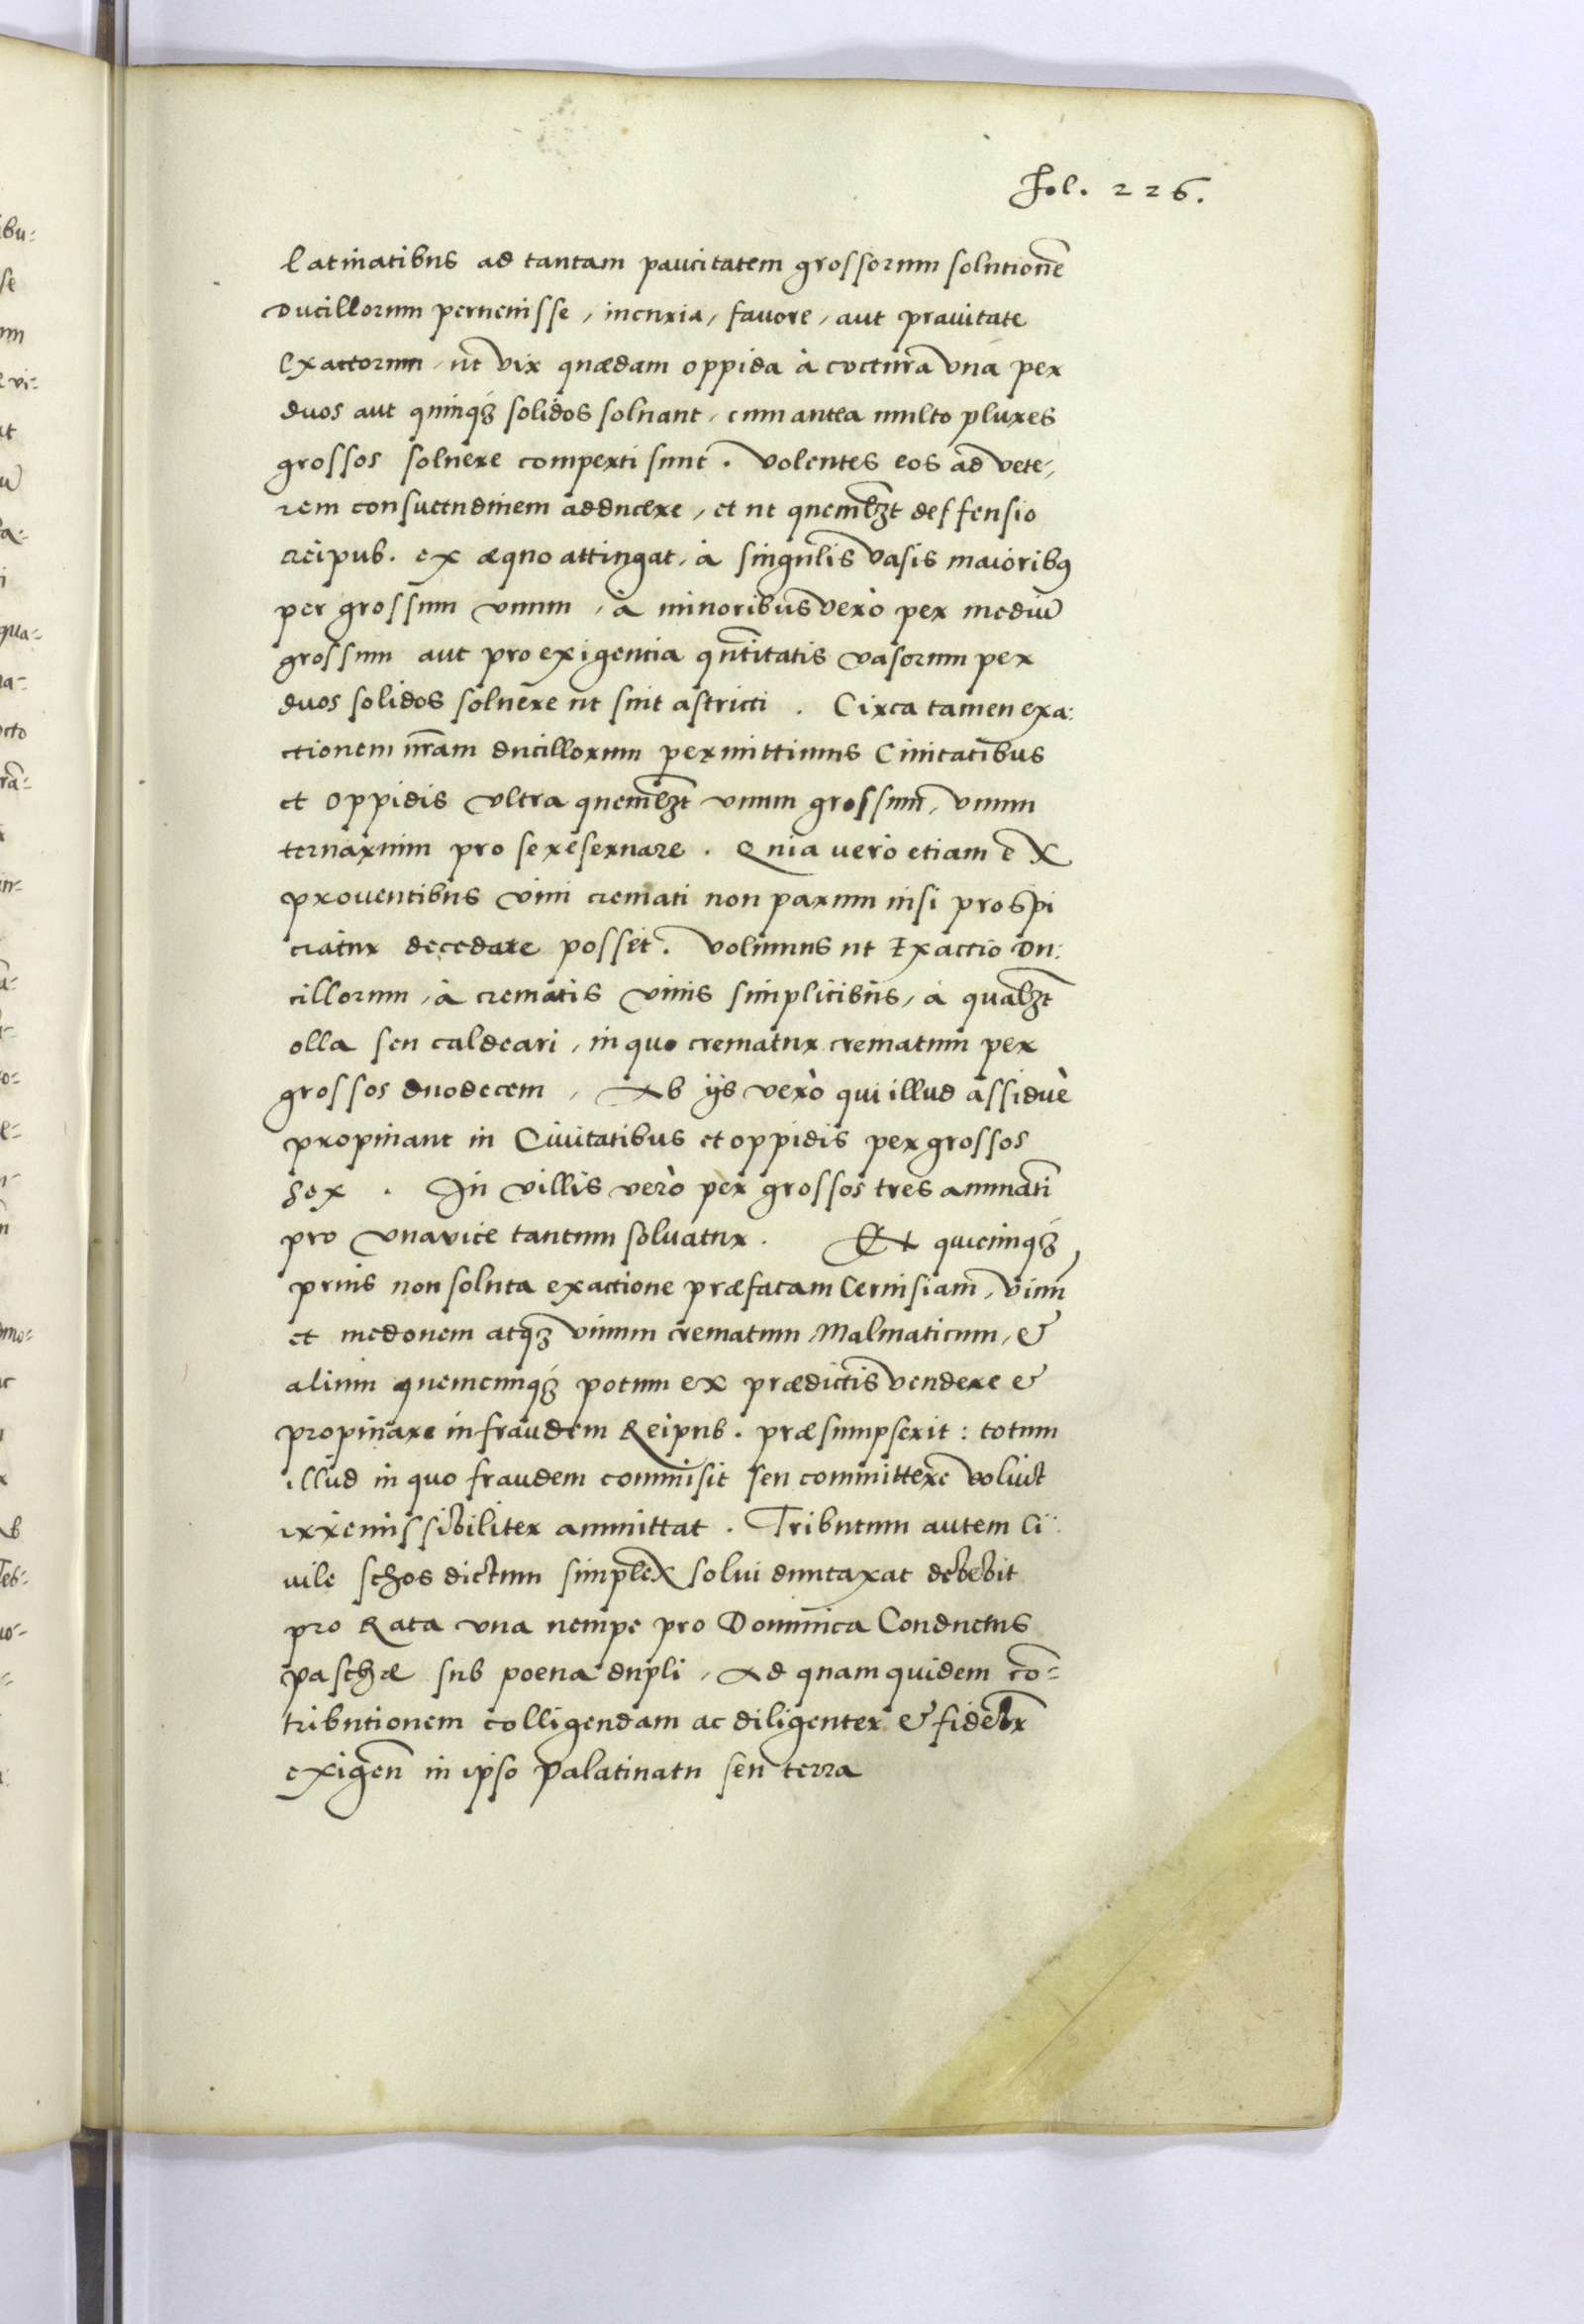 Fol. 226.
latinatibus ad tantam paucitatem grossorum solutionē
Ducillorum peruenisse, incuria, fauore, aut prauitate
Exactorum, ut vix quædam oppida à coctura una per
duos aut quinqꝫ solidos soluant, cum antea multo plures
grossos soluere comperti sunt. Volentes eos ad vete,
rem consuetudinem adducere, et ut quemlꝫt deffensio
reipub. ex æquo attingat, à singulis vasis maioribꝰ
per grossum unum, à minoribus verò per mediū
grossum aut pro exigentia qntitatis vasorum per
duos solidos soluere ut sint astricti. Circa tamen exa:
ctionem nr̄am ducillorum permittimus Ciuitatibus
et Oppidis ultra quemlꝫt unum grossum, unum
ternarium pro se reseruare. Quia uerò etiam ex
prouentibus vini cremati non parum nisi prospi
ciatur decedere posset. Volumus ut Exactio Du:
cillorum, à crematis vinis simplicibus, à qualꝫt
olla seu caldeari, in quo crematur crematum per
grossos duodecem, Ab ijs verò qui illud assiduè
propinant in Ciuitatibus et oppidis per grossos
sex. In villis verò per grossos tres annuati
pro una vice tantum soluatur. Et quicunqꝫ
prius non soluta exactione præfatam Ceruisiam, vinū
et medonem atqꝫ vinum crematum, Malmaticum, &
alium quemcunqꝫ potum ex prædictis vendere &
propinare in fraudem Reipub. præsumpserit: totum
illud in quo fraudem commisit seu committere voluit
irremissibiliter ammittat. Tributum autem Ci:
uile schos dictum simplex solui duntaxat debebit
pro Rata una nempe pro Dominica Conductus
paschæ sub poena dupli, Ad quam quidem cō=
tributionem colligendam ac diligenter & fidelr̄
exigen̄ in ipso Palatinatu seu terra